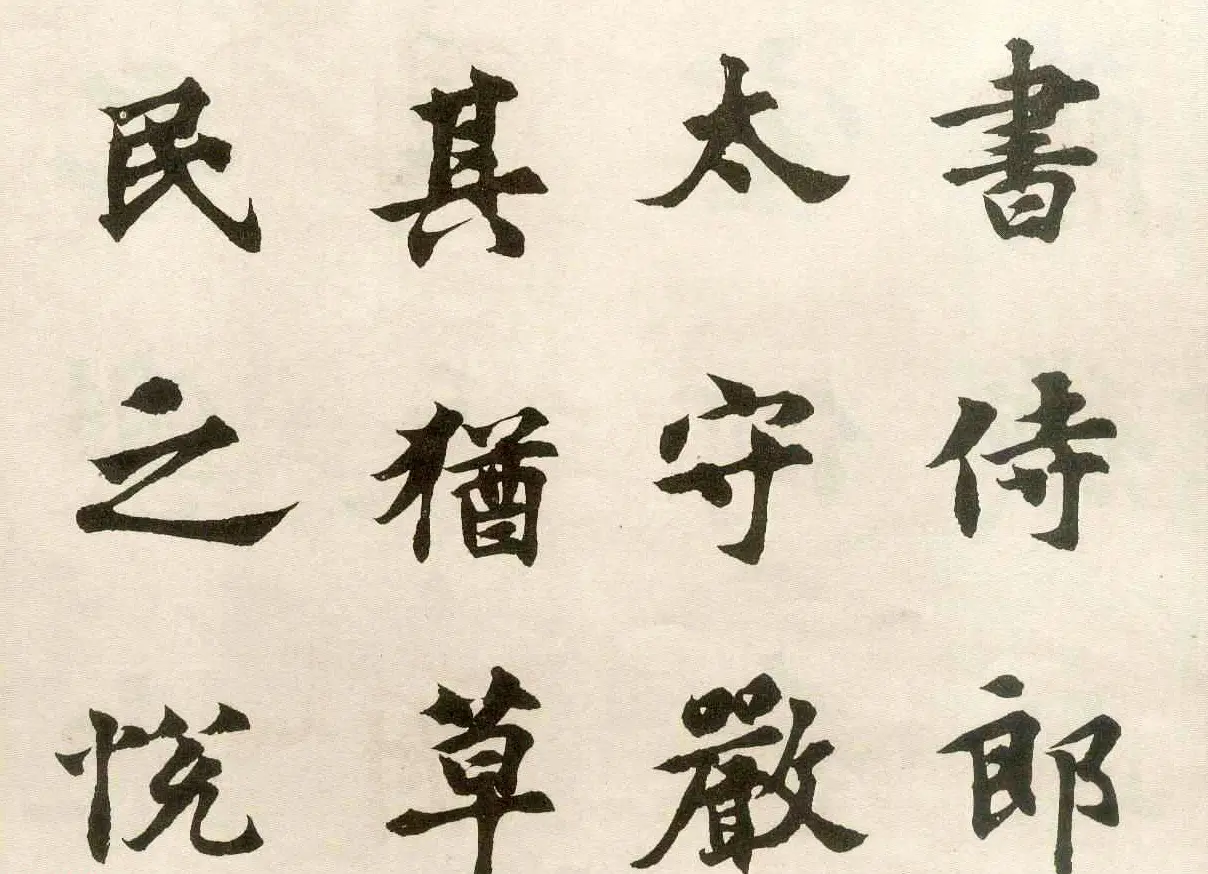 書侍郎
太守嚴
其猶草
民之悦